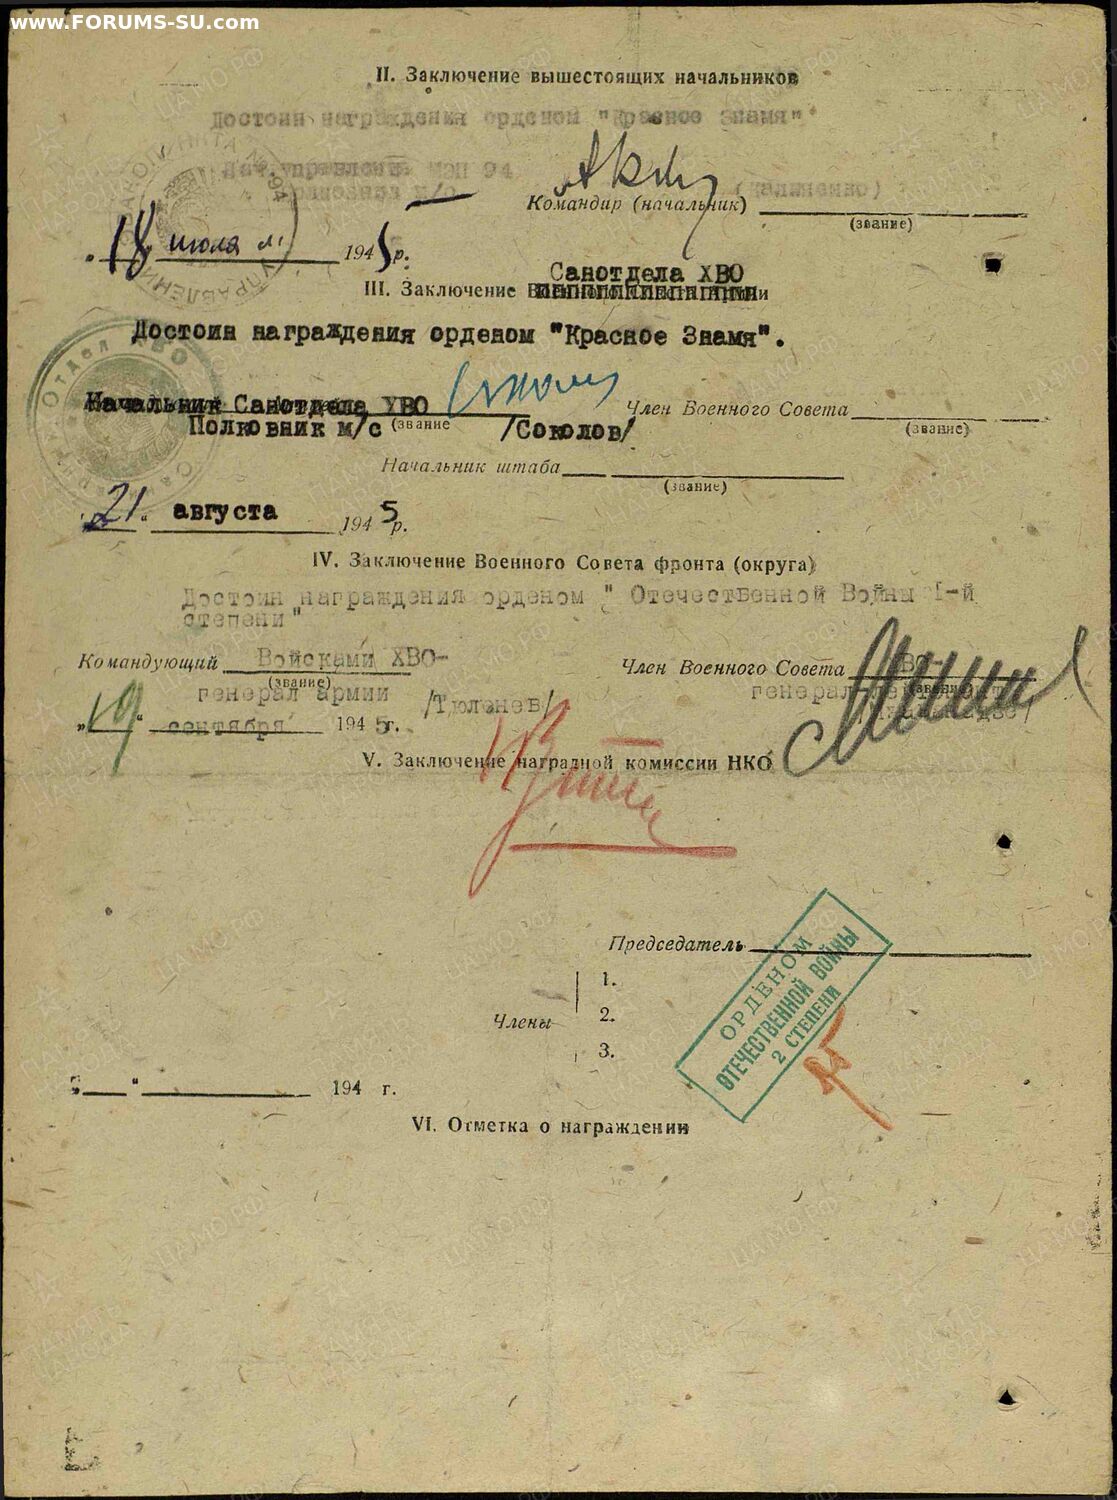 www.FORUMS-SU.com
II. Заключение вышестоящих начальников
Достоин награждения орденом "Красное Знамя"
Нач.управления МЭП 94
м/с
Командир (начальник)
(звание)
"18" июля 1945 г.
Санотдела ХВО
III. Заключение
Достоин награждения орденом "Красное Знамя".
Начальник Санотдела ХВО
Член Военного Совета
Полковник м/с (звание /Соколов/
(звание)
Начальник штаба
(звание)
"21" августа 1945 г.
IV. Заключение Военного Совета фронта (округа)
Достоин награждения орденом " Отечественной Войны 1-й
степени"
Командующий Войсками ХВО-
Член Военного Совета ХВО-
(звание)
генерал армии /Тюленев/
генерал
"19" сентября 1945 г.
V. Заключение наградной комиссии НКО
Председатель
ОРДЕНОМ
ОТЕЧЕСТВЕННОЙ ВОЙНЫ
2 СТЕПЕНИ
Члены
1.
2.
3.
" " 194 г.
VI. Отметка о награждении